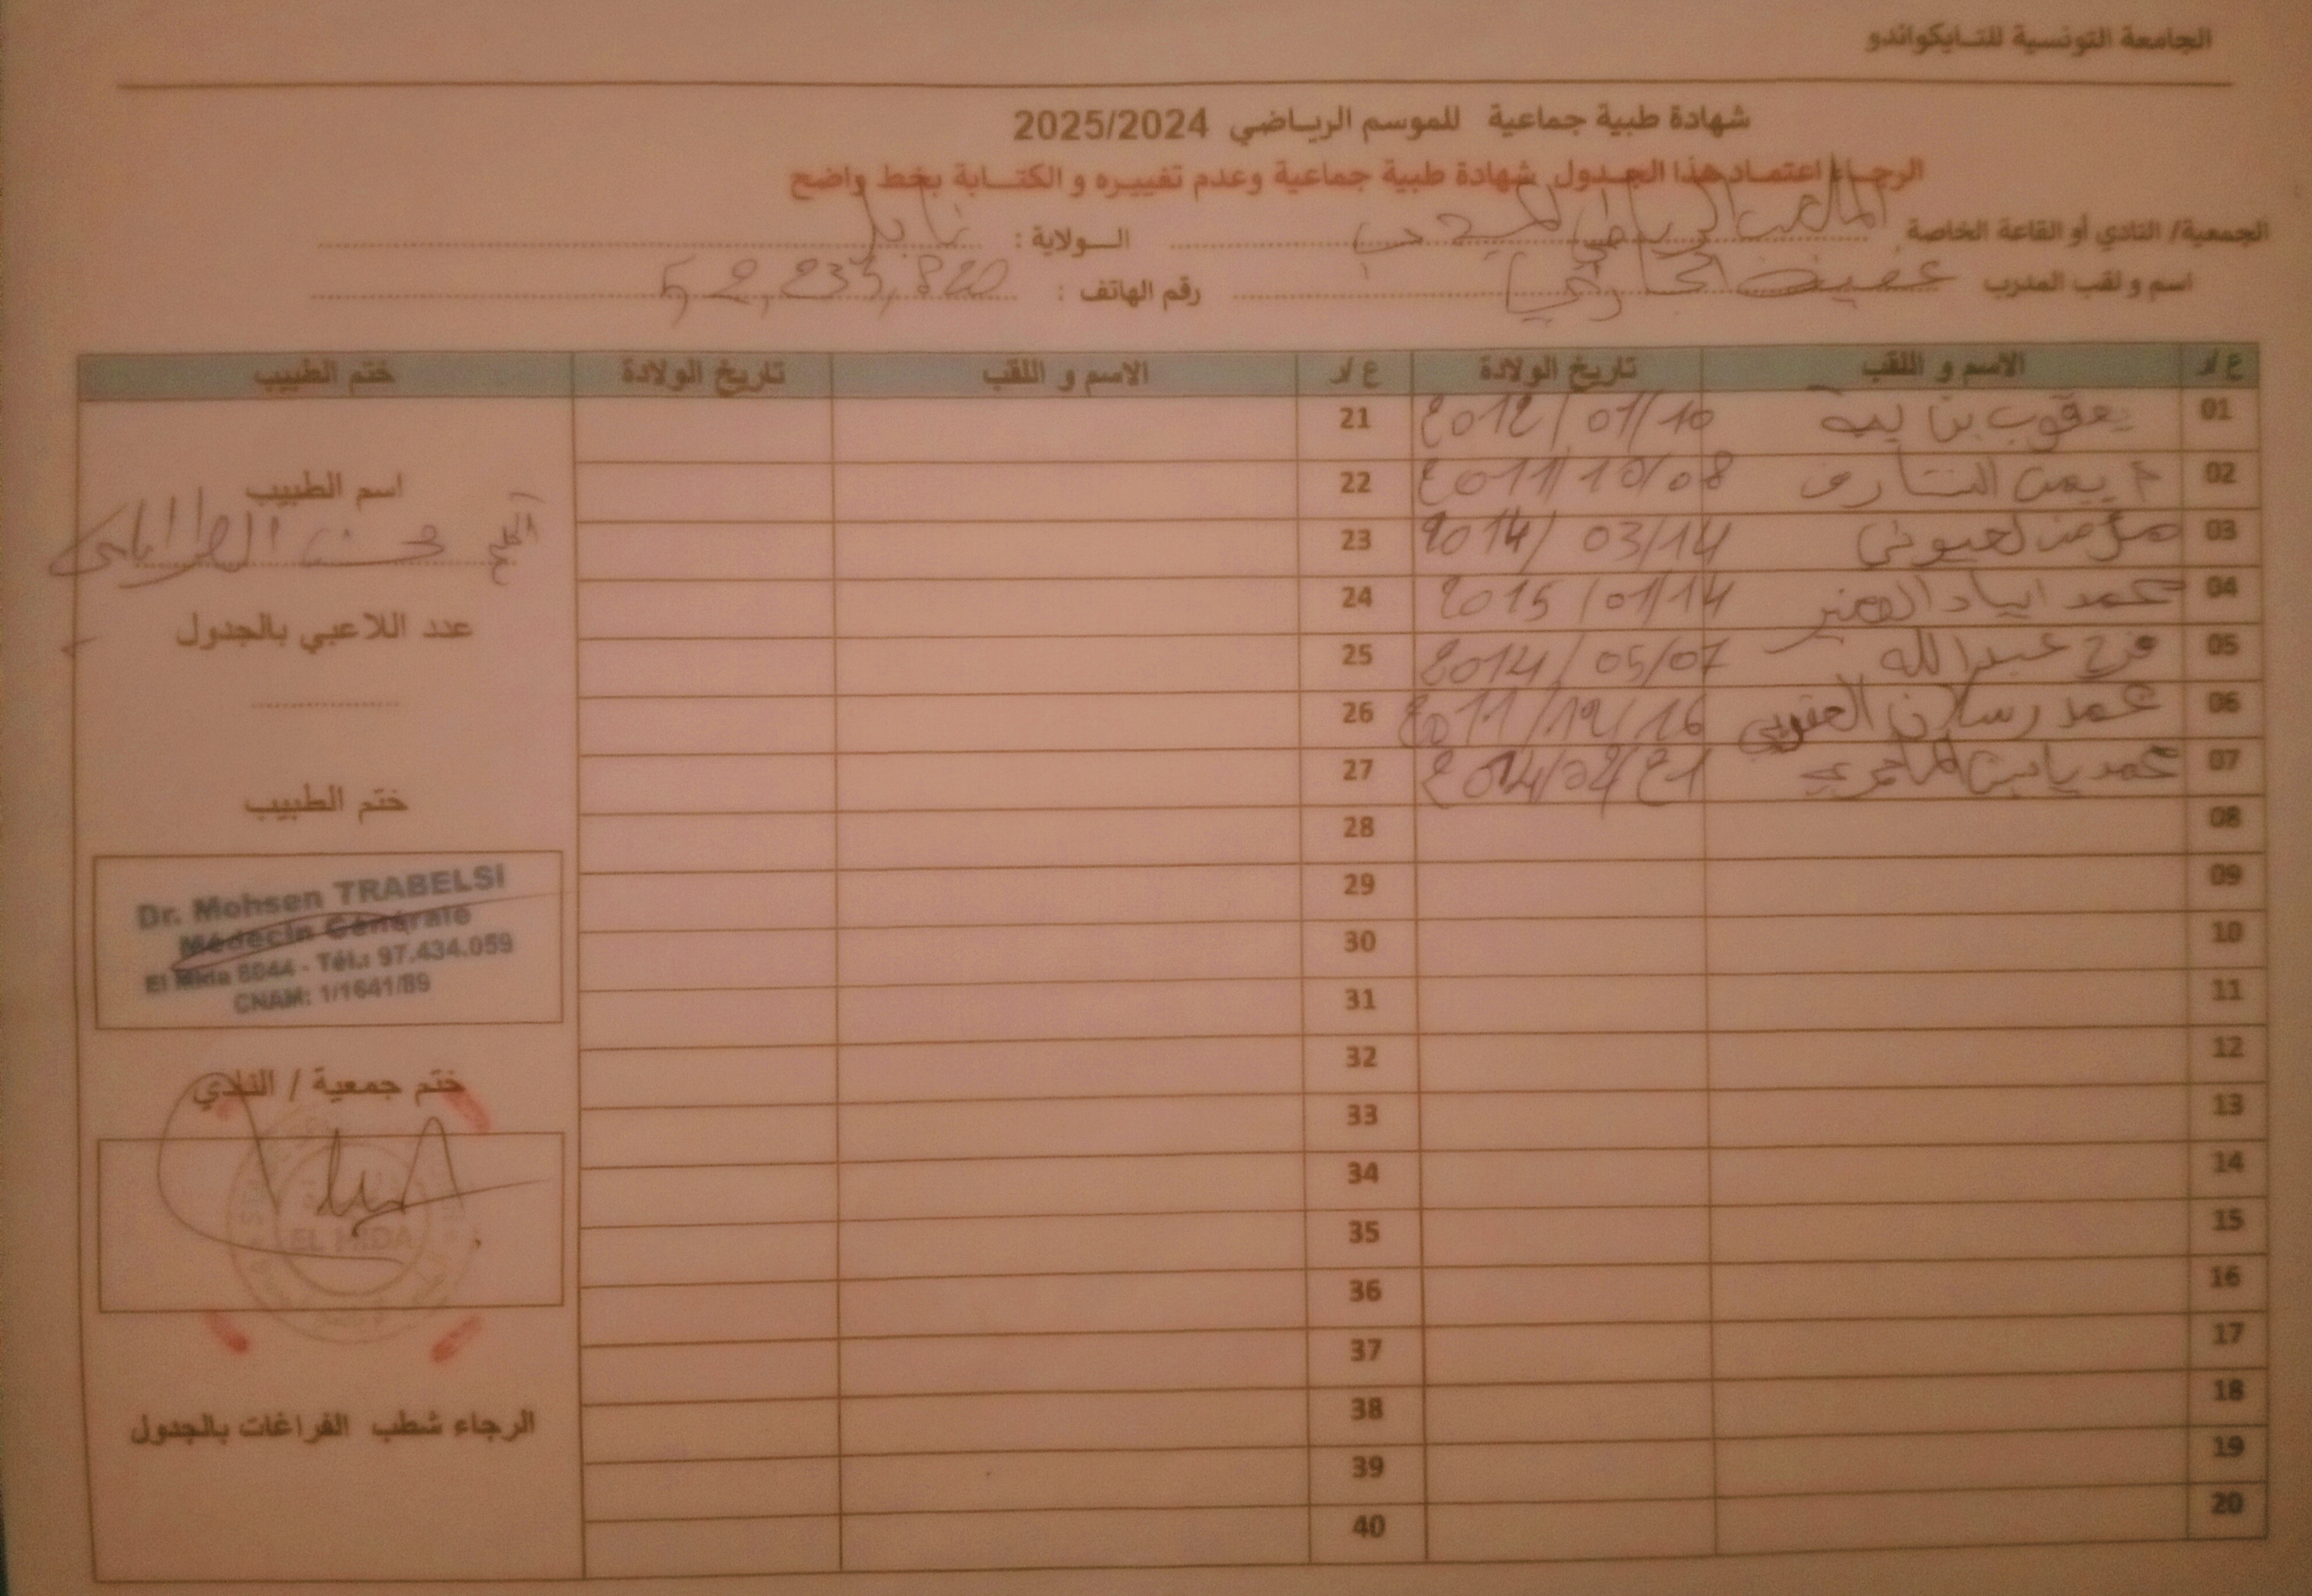 الجامعة التونسية للتايكواندو
شهادة طبية جماعية للموسم الرياضي 2025/2024
الرجاء اعتماد هذا الجدول شهادة طبية جماعية وعدم تغييره و الكتابة بخط واضح
الجمعية/ النادي أو القاعة الخاصة الملعب الرياضي الولاية : نابل
اسم و لقب المدرب عفيف رقم الهاتف : 52,233,820
ع/ر الاسم و اللقب تاريخ الولادة ع/ر الاسم و اللقب تاريخ الولادة ختم الطبيب
01 يعقوب بن 2012/01/10 21
02 الشارف 2011/10/08 22
اسم الطبيب
محسن الطرابلسي
03 لعيوني 2014/03/14 23
04 محمد اياد 2015/01/14 24
عدد اللاعبي بالجدول
05 فرج عبد الله 2014/05/07 25
06 محمد رسلان 2011/12/16 26
07 محمد ياسين 27
ختم الطبيب
08 28
09 29
10 30
11 31
Dr. Mohsen TRABELSI
Médecin Générale
El Mida 8044 - Tél.: 97.434.059
CNAM: 1/1641/89
12 32
ختم جمعية / النادي
13 33
14 34
15 35
EL MIDA
16 36
17 37
18 38
الرجاء شطب الفراغات بالجدول
19 39
20 40